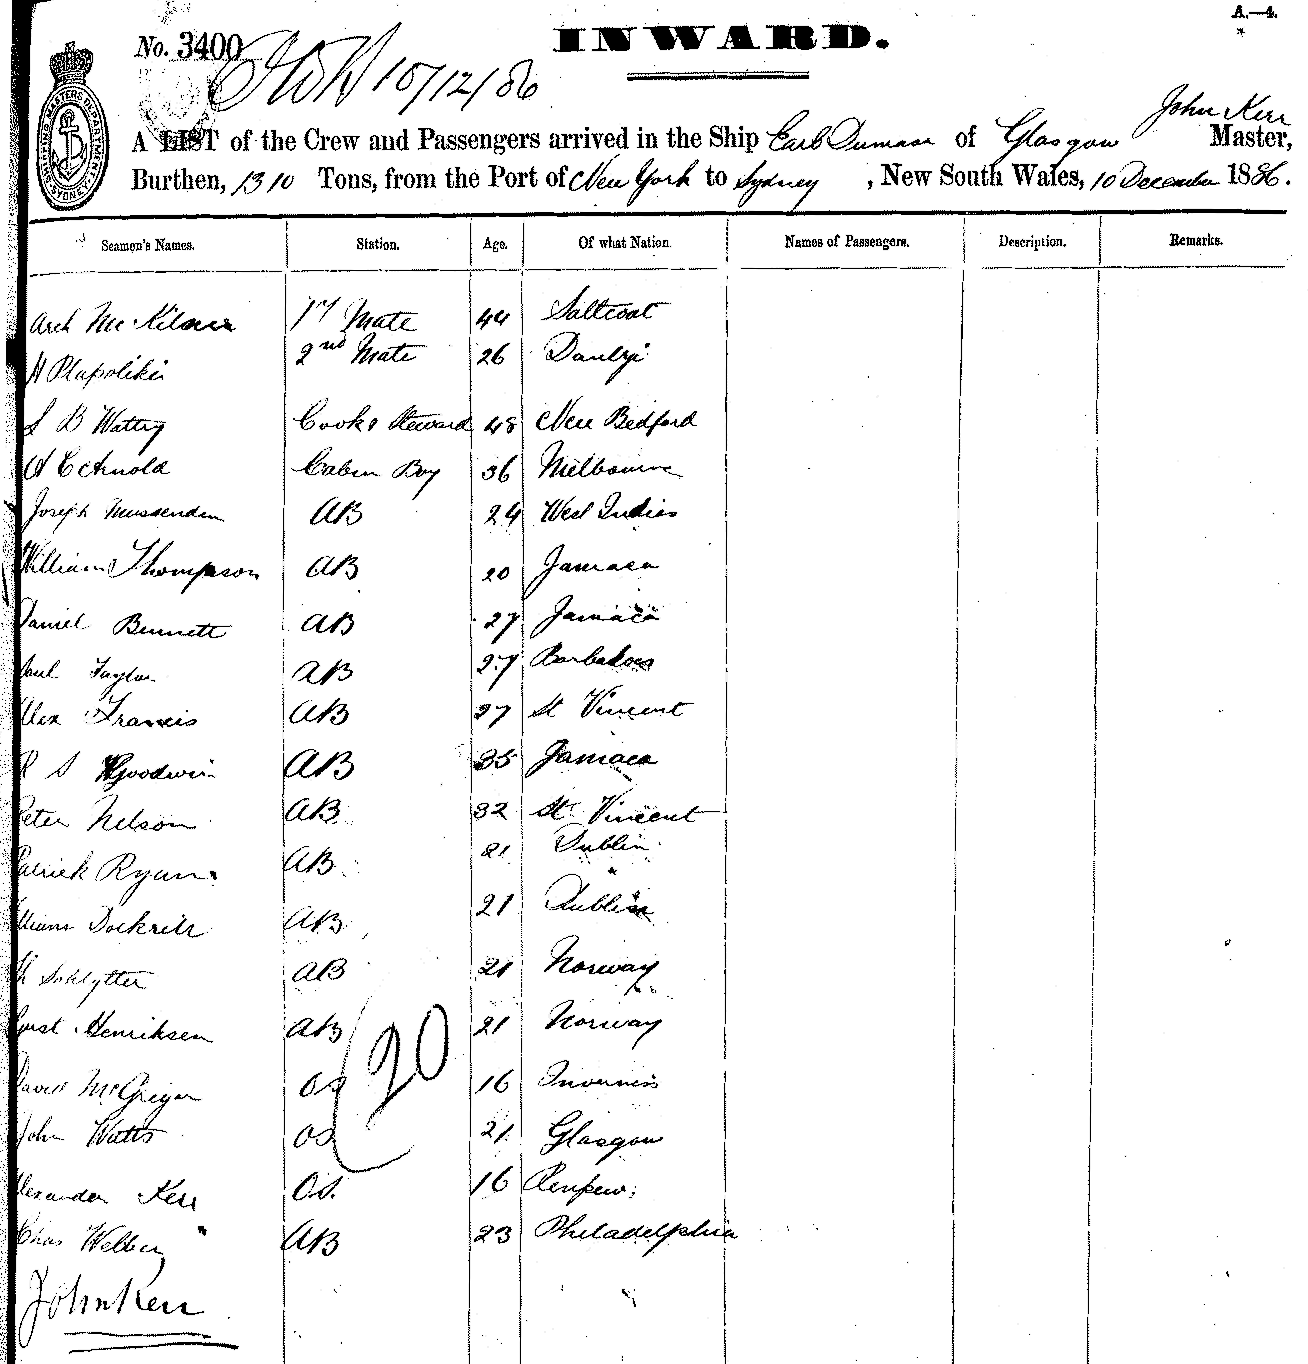 A.—4.
No. 3400
INWARD.
10/12/86
John Kerr
A LIST of the Crew and Passengers arrived in the Ship Earl Dunmore of Glasgow Master,
Burthen, 1310 Tons, from the Port of New York to Sydney, New South Wales, 10 December 1886.
Seamen's Names. Station. Age. Of what Nation. Names of Passengers. Description. Remarks.
Arch 1st Mate 44 Saltcoat
H 2nd Mate 26
S B Cook & Steward 48 New Bedford
A C Arnold Cabin Boy 36 Melbourne
Joseph Mussenden AB 24 West Indies
William Thompson AB 20 Jamaca
Daniel Bennett AB 27 Jamaca
Paul Taylor AB 27 Barbadoes
Alex Francis AB 27 St Vincent
R S Goodwin AB 35 Jamaca
Peter Nelson AB 32 St Vincent
Patrick Ryan AB 21 Dublin
William Dockrill AB 21 Dublin
Schlytter AB 21 Norway
Henriksen AB 21 Norway
20
David McGregor OS 16 Inverness
John Watts OS 21 Glasgow
Alexander Kerr O.S. 16 Renfrew
Chas AB 23 Philadelphia
John Kerr